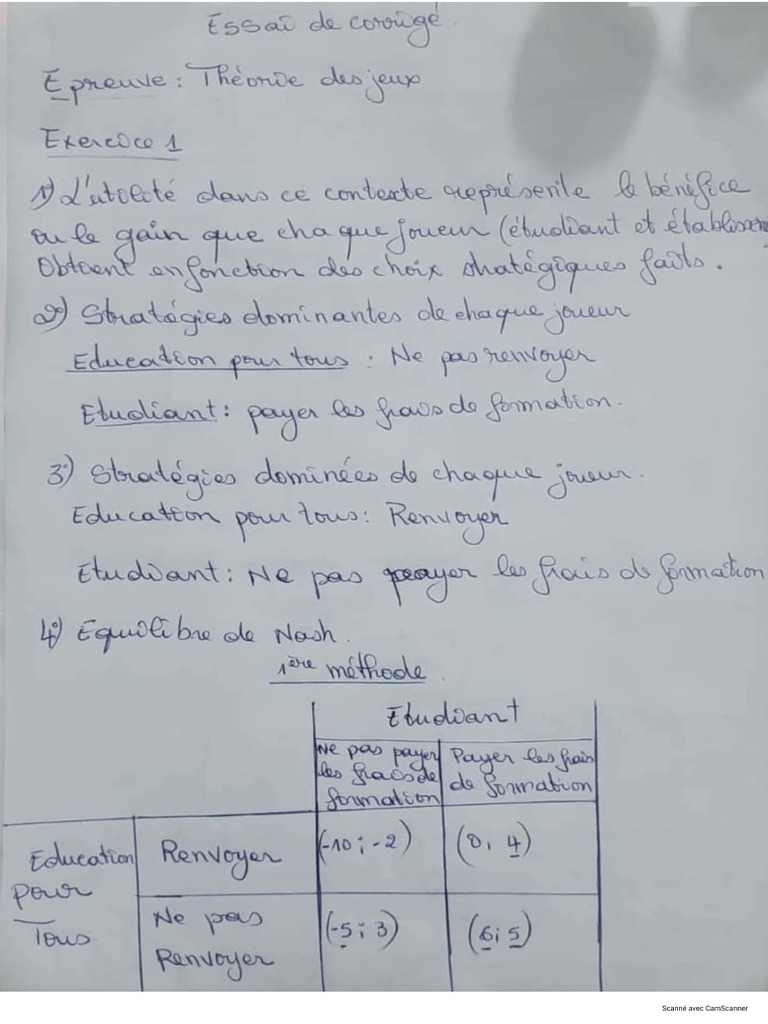 Essai de corrigé.
Epreuve : Théorie des jeux
Exercice 1
1) L'utilité dans ce contexte représente le bénéfice
ou le gain que chaque joueur (étudiant et établissem
Obtient en fonction des choix stratégiques faits.
2) Stratégies dominantes de chaque joueur
Education pour tous : Ne pas renvoyer
Etudiant : payer les frais de formation.
3) Stratégies dominées de chaque joueur.
Education pour tous : Renvoyer
Etudiant : Ne pas payer les frais de formation
4) Equilibre de Nash.
1ère méthode
Etudiant
Ne pas payer les frais de formation
Payer les frais de formation
Education pour Tous
Renvoyer
(-10 ; -2)
(0, 4)
Ne pas Renvoyer
(-5 ; 3)
(6 ; 5)
Scanné avec CamScanner